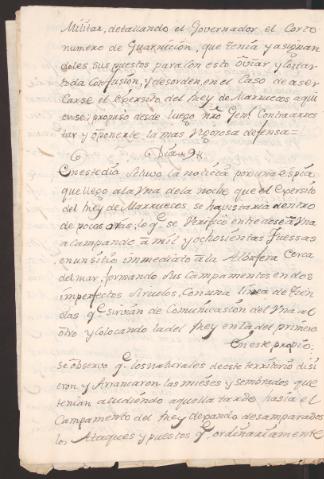 Militar, detallando el Governador el Corto
numero de Guarnicion, que tenia y asignan
doles, sus puestos para con esto obiar y Cortar
toda Confusion, y desorden, en el Caso de acer
Carse el Exersito del Rey de Marruecos aqui
ense; propuso desde luego nro Genl Contrarres
tar y oponerle la mas vigorosa defensa=
Dia 9
En este dia se tuvo la noticia por una espia,
que llego a la Una de la noche que el Exersito
del Rey de Marruecos se havistaria dentro
de pocas oras; lo q. se Verificó entre dose a Una
acampando a mil y ochosientas Tuessas
en un sitio inmediato a la Albufera Cerca
del mar, formando sus Campamentos en dos
imperfectos Sirculos, Con una linea de Tien
das q. servian de Comunicasion del Uno al
otro y Colocando la del Rey en la del primero
En este propio;
se observo q. los naturales de este territorio disi
eron y Arrancaron las mieses y sembrados que
tenian acudiendo aquella tarde hasta el
Campamento del Rey dejando desamparados
los Ataques y puestos q. ordinariamente